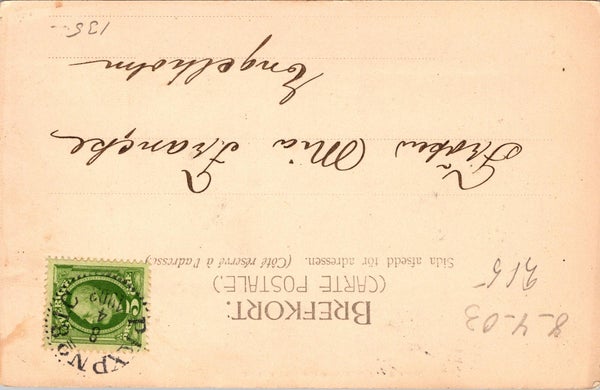 BREFKORT.
(CARTE POSTALE.)
Sida afsedd för adressen. (Côté réservé à l'adresse)
Fröken Mia Francke
Engelholm
135-
8-4-03
915